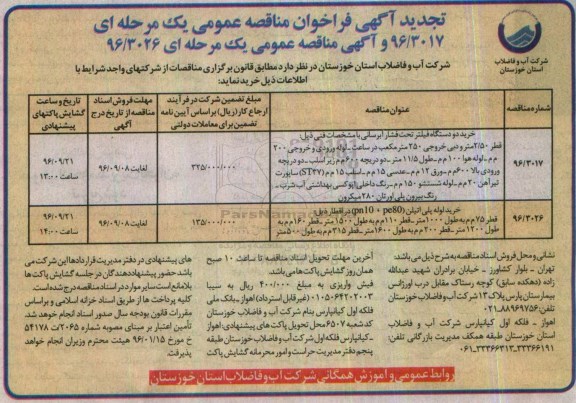 تجدید آگهی فراخوان مناقصه عمومی یک مرحله ای
۹۶/۳۰۱۷ و آگهی مناقصه عمومی یک مرحله ای ۹۶/۳۰۲۶
شرکت آب و فاضلاب
استان خوزستان
شرکت آب و فاضلاب استان خوزستان در نظر دارد مطابق قانون برگزاری مناقصات از شرکتهای واجد شرایط با
اطلاعات ذیل خرید نماید:
شماره مناقصه
عنوان مناقصه
مبلغ تضمین شرکت در فرآیند
ارجاع کار (ریال) براساس آیین نامه
تضمین برای معاملات دولتی
مهلت فروش اسناد
مناقصه از تاریخ درج
آگهی
تاریخ و ساعت
گشایش پاکتهای
پیشنهادی
۹۶/۳۰۱۷
خرید دو دستگاه فیلتر تحت فشار آبرسانی با مشخصات فنی ذیل:
قطر ۲/۵۰ متر و دبی خروجی ۲۵۰ متر مکعب در ساعت - لوله ورودی و خروجی ۲۰۰
م م - لوله هوا ۱۰۰ م م - طول ۱۱/۵ متر - دو دریچه ۶۰۰ م م زیر اسلب - دو دریچه
ورودی بالا ۶۰۰ م م - ورق ۱۲ م م - عدسی ۱۵ م م - اسلب ۱۵ م م (ST۳۷) ساپورت
تیر آهن ۲۰ م م - لوله شستشو ۱۵۰ م م - رنگ داخلی اپوکسی بهداشتی آب شرب -
رنگ بیرون پلی اورتان ۲۸۰ میکرون
۳۲۵/۰۰۰/۰۰۰
لغایت ۹۶/۰۹/۰۸
۹۶/۰۹/۲۱
ساعت ۱۳:۰۰
۹۶/۳۰۲۶
خرید لوله پلی اتیلن (pn10 - pe80) در اقطار ذیل:
قطر ۷۵ م م به طول ۱۰۰۰ متر - قطر ۱۱۰ م م به طول ۱۵۰۰ متر - قطر ۱۶۰ م م به
طول ۱۲۰۰ متر - قطر ۲۰۰ م م به طول ۱۶۰۰ متر - قطر ۳۱۵ م م به طول ۵۰۰ متر
۱۳۵/۰۰۰/۰۰۰
لغایت ۹۶/۰۹/۰۸
۹۶/۰۹/۲۱
ساعت ۱۴:۰۰
نشانی و محل فروش اسناد مناقصه به شرح ذیل می باشد:
تهران - بلوار کشاورز - خیابان برادران شهید عبداله
زاده (دهکده سابق) کوچه رستاک مقابل درب اورژانس
بیمارستان پارس پلاک ۱۳ شرکت آب و فاضلاب خوزستان
تلفن: ۸۸۹۶۹۷۵۶-۰۲۱
اهواز - فلکه اول کیانپارس شرکت آب و فاضلاب
استان خوزستان طبقه همکف مدیریت بازرگانی تلفن:
۳۳۳۶۶۱۹۱-۳۳۳۶۶۳۱۳-۰۶۱
آخرین مهلت تحویل اسناد مناقصه تا ساعت ۱۰ صبح
همان روز گشایش پاکت ها می باشد.
فیش واریزی به مبلغ ۴۰۰/۰۰۰ ریال به سیبا
۰۱۰۵۰۶۴۲۰۲۰۰۳ (غیر قابل استرداد) اهواز - بانک ملی
فلکه اول کیانپارس بنام شرکت آب و فاضلاب خوزستان
کد شعبه ۶۵۰۷ محل تحویل پاکت های پیشنهادی: اهواز
- کیانپارس فلکه اول شرکت آب و فاضلاب خوزستان طبقه
پنجم دفتر مدیریت حراست و امور محرمانه گشایش پاکت
های پیشنهادی در دفتر مدیریت قراردادها این شرکت می
باشد حضور پیشنهاد دهندگان در جلسه گشایش پاکت ها
بلامانع است سایر موارد در اسناد مناقصه درج شده است.
کلیه پرداخت ها از طریق اسناد خزانه اسلامی و براساس
مقررات قانون بودجه سال صدور اسناد انجام خواهد شد.
تأمین اعتبار بر مبنای مصوبه شماره ۲۰۶۵/ت ۵۴۱۷۸
ح مورخ ۹۶/۰۱/۱۵ هیئت محترم وزیران انجام خواهد
پذیرفت
روابط عمومی و آموزش همگانی شرکت آب و فاضلاب استان خوزستان